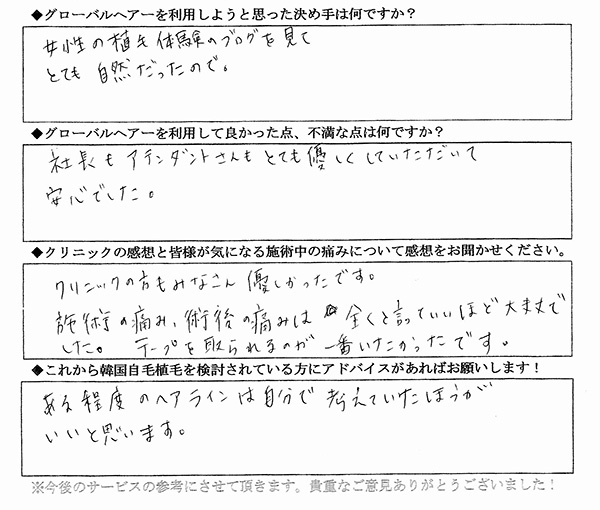 ◆グローバルヘアーを利用しようと思った決め手は何ですか？
女性の植毛体験のブログを見て
とても自然だったので。
◆グローバルヘアーを利用して良かった点、不満な点は何ですか？
社長もアテンダントさんもとても優しくしていただいて
安心でした。
◆クリニックの感想と皆様が気になる施術中の痛みについて感想をお聞かせください。
クリニックの方もみなさん優しかったです。
施術の痛み、術後の痛みは全くと言っていいほど大丈夫で
した。テープを取られるのが一番いたかったです。
◆これから韓国自毛植毛を検討されている方にアドバイスがあればお願いします！
ある程度のヘアラインは自分で考えていたほうが
いいと思います。
※今後のサービスの参考にさせて頂きます。貴重なご意見ありがとうございました！